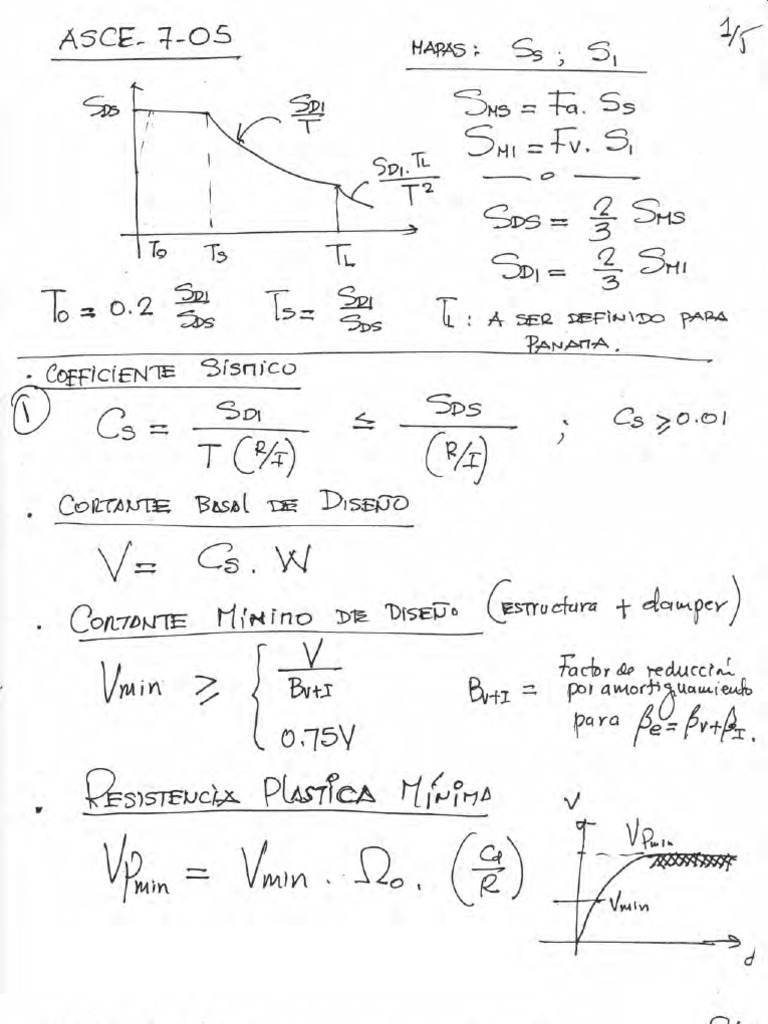 ASCE-7-05
1/5
MAPAS: Ss ; S1
SMS = Fa. Ss
SM1 = Fv. S1
SDS = 2/3 SMS
SD1 = 2/3 SM1
SDS
SD1/T
SD1.TL/T²
To Ts TL
To = 0.2 SD1/SDS Ts = SD1/SDS TL: A SER DEFINIDO PARA
PANAMA.
. COEFFICIENTE SÍSMICO
① Cs = SD1/T(R/I) ≤ SDS/(R/I) ; Cs ≥ 0.01
. CORTANTE BASAL DE DISEÑO
V = Cs . W
. CORTANTE MÍNIMO DE DISEÑO (ESTructura + damper)
Vmin ≥ { V/BV+I
0.75V
BV+I = Factor de reducción
por amortiguamiento
para βe = βV + βI.
. RESISTENCIA PLASTICA MÍNIMA
VPmin = Vmin . Ωo. (Cd/R)
V
VPmin
Vmin
d